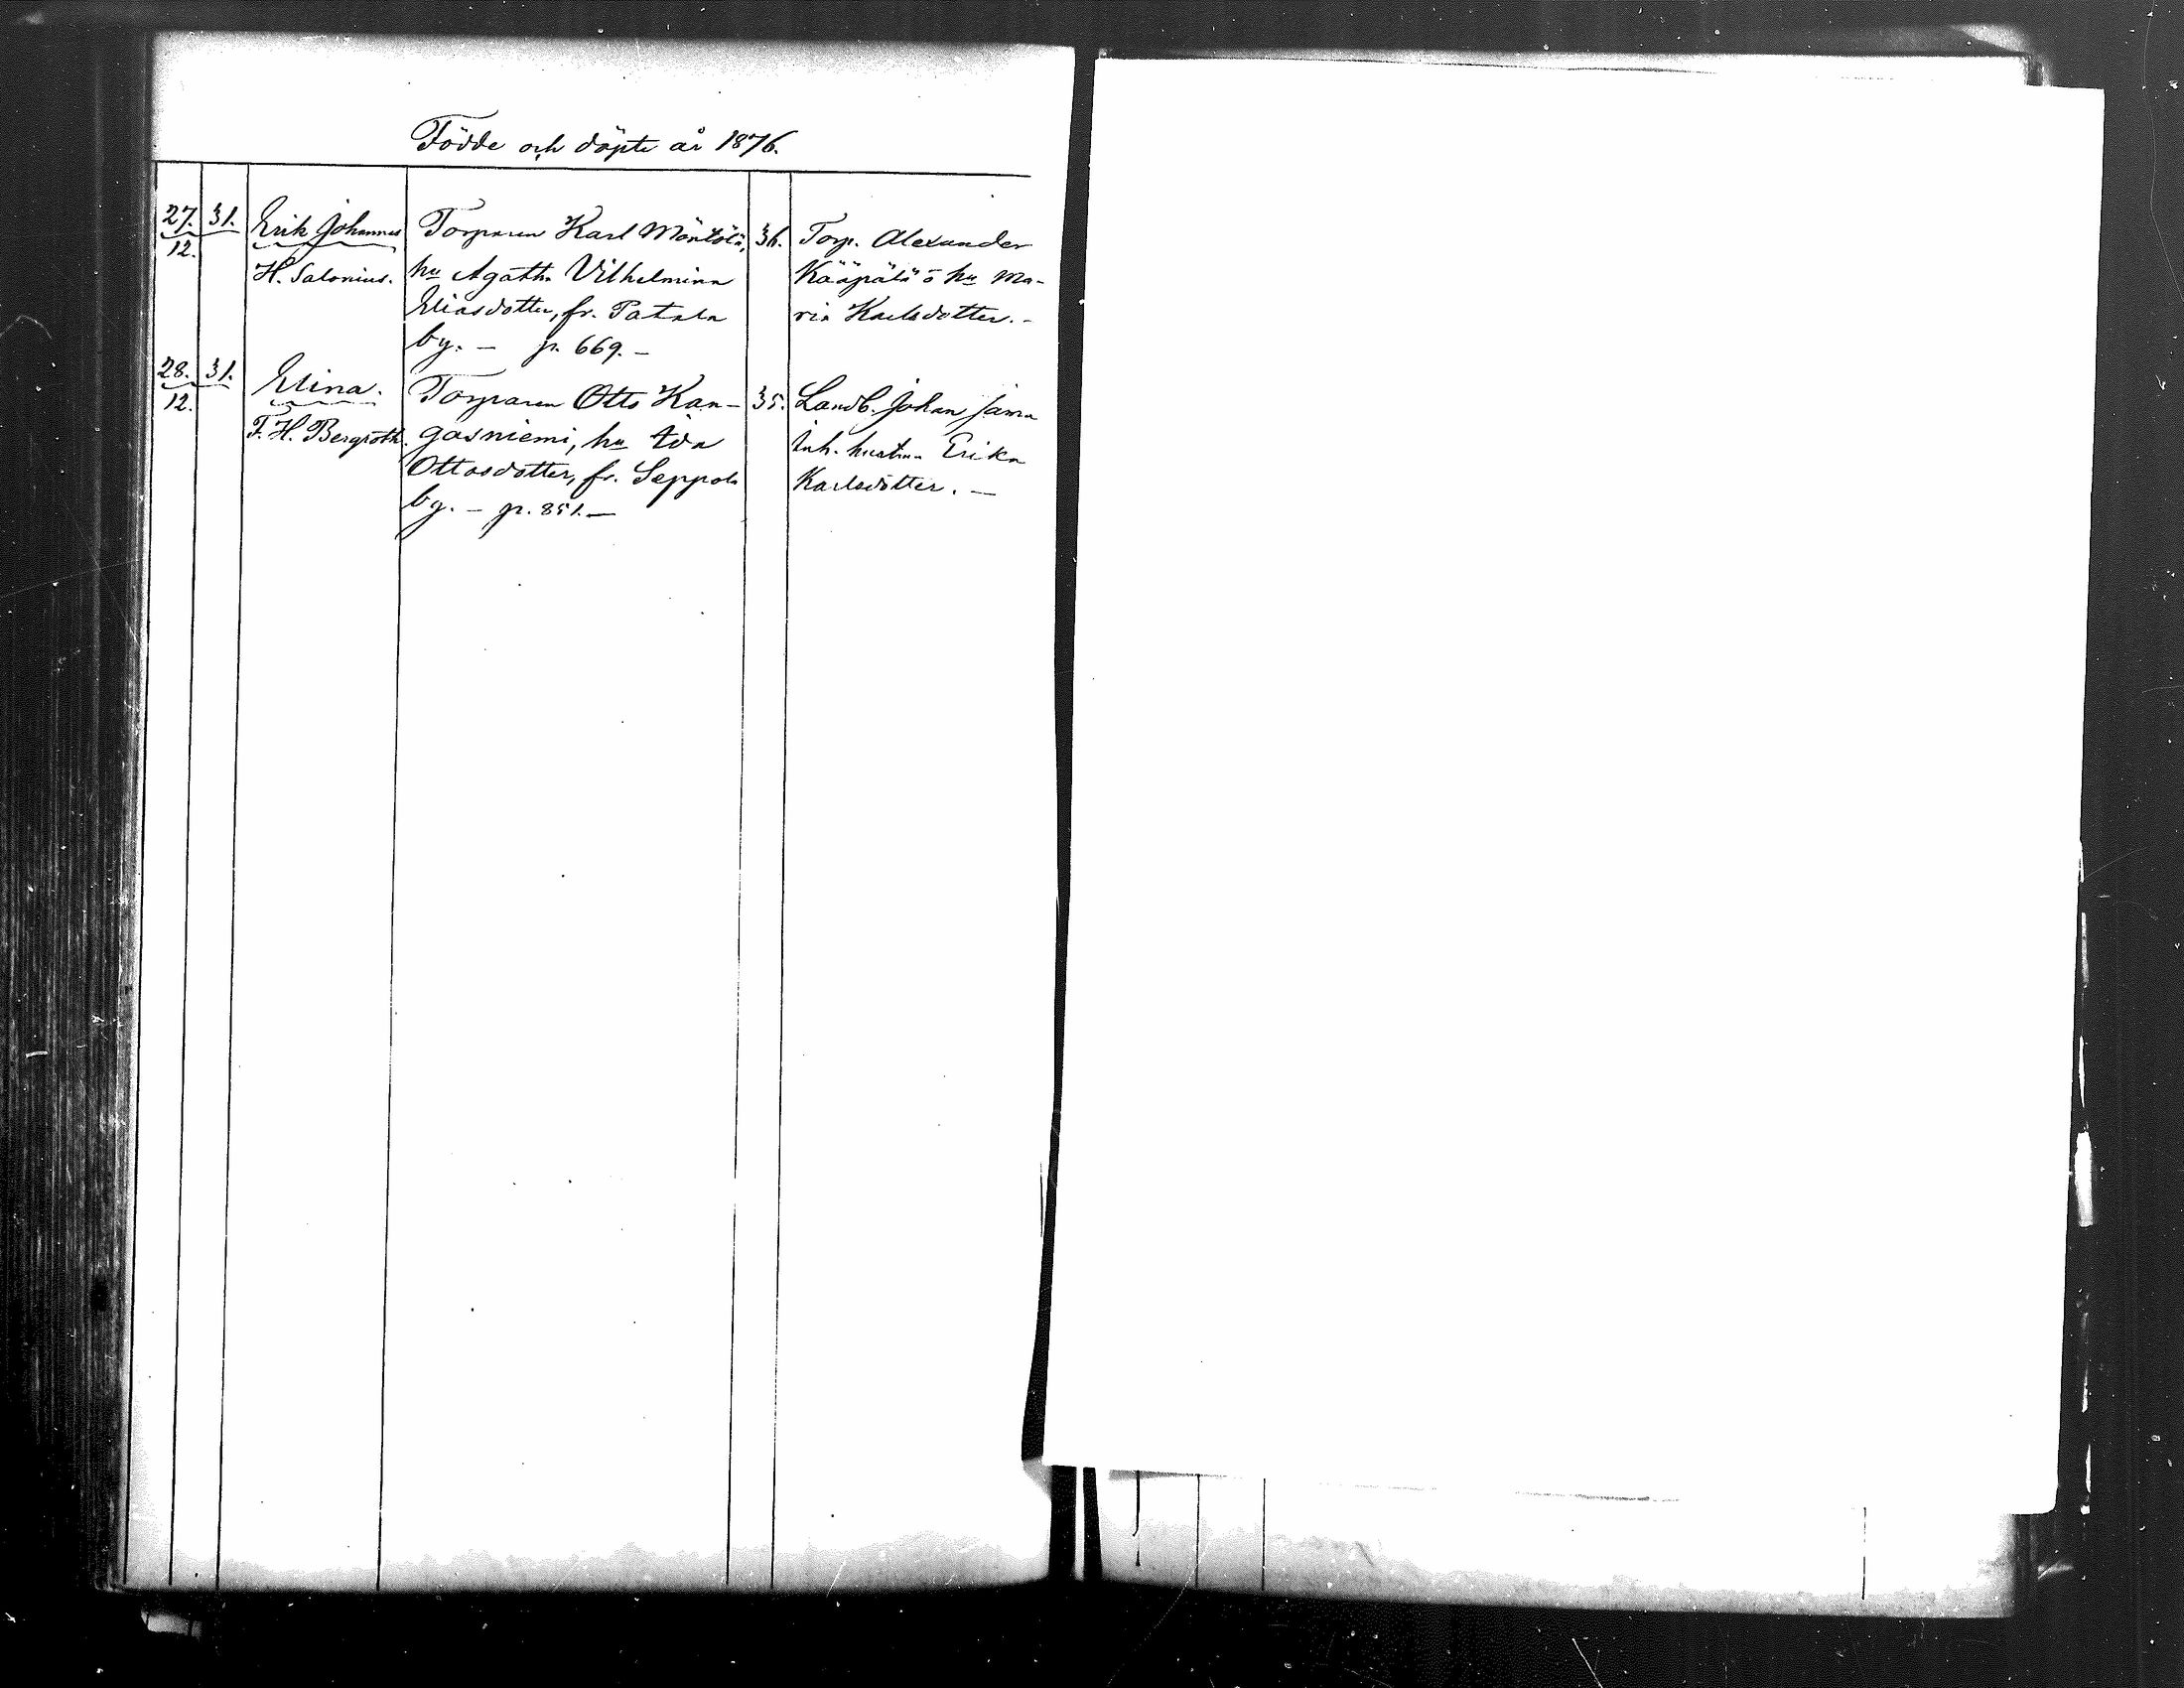 Födde och döpte år 1876.
27. 31. Erik Johannes Torparen Karl Mäntölä, 36. Torp. Alexander
12. H. Salonius. hu Agatha Vilhelmina Kääpälä o hu Ma-
Eliasdotter, fr. Patala ria Karlsdotter. -
by. - p. 669. -
28. 31. Elina. Torparen Otto Kan- 35. Landb. Johan Jama
12. F. H. Bergroth. gasniemi, hu Ida Inh. hustru Erika
Ottosdotter, fr. Seppola Karlsdotter. -
by. - p. 851. -